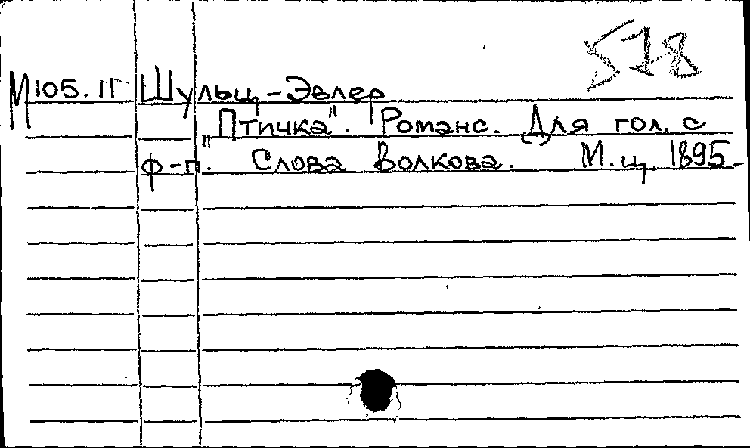 578
М 105.IГ Шульц-Эвлер
„Птичка". Романс. Для гол. с
ф-п. Слова Волкова. М.ц. 1895